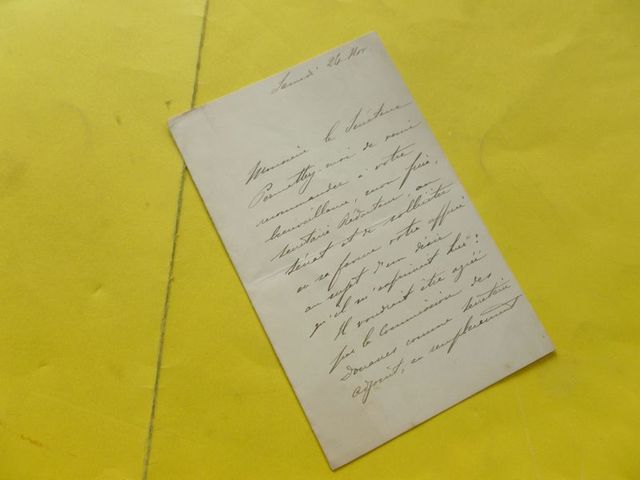 Samedi 26 Nov
Monsieur le Sénateur
Permettez moi de venir
recommander à votre
bienveillance, mon frère,
secrétaire Rédacteur, au
Sénat et de solliciter
en sa faveur votre appui
au sujet d'un désir
qu'il m'exprimait hier:
Il voudrait être agréé
par la Commission des
Douanes comme secrétaire
adjoint, en remplacement